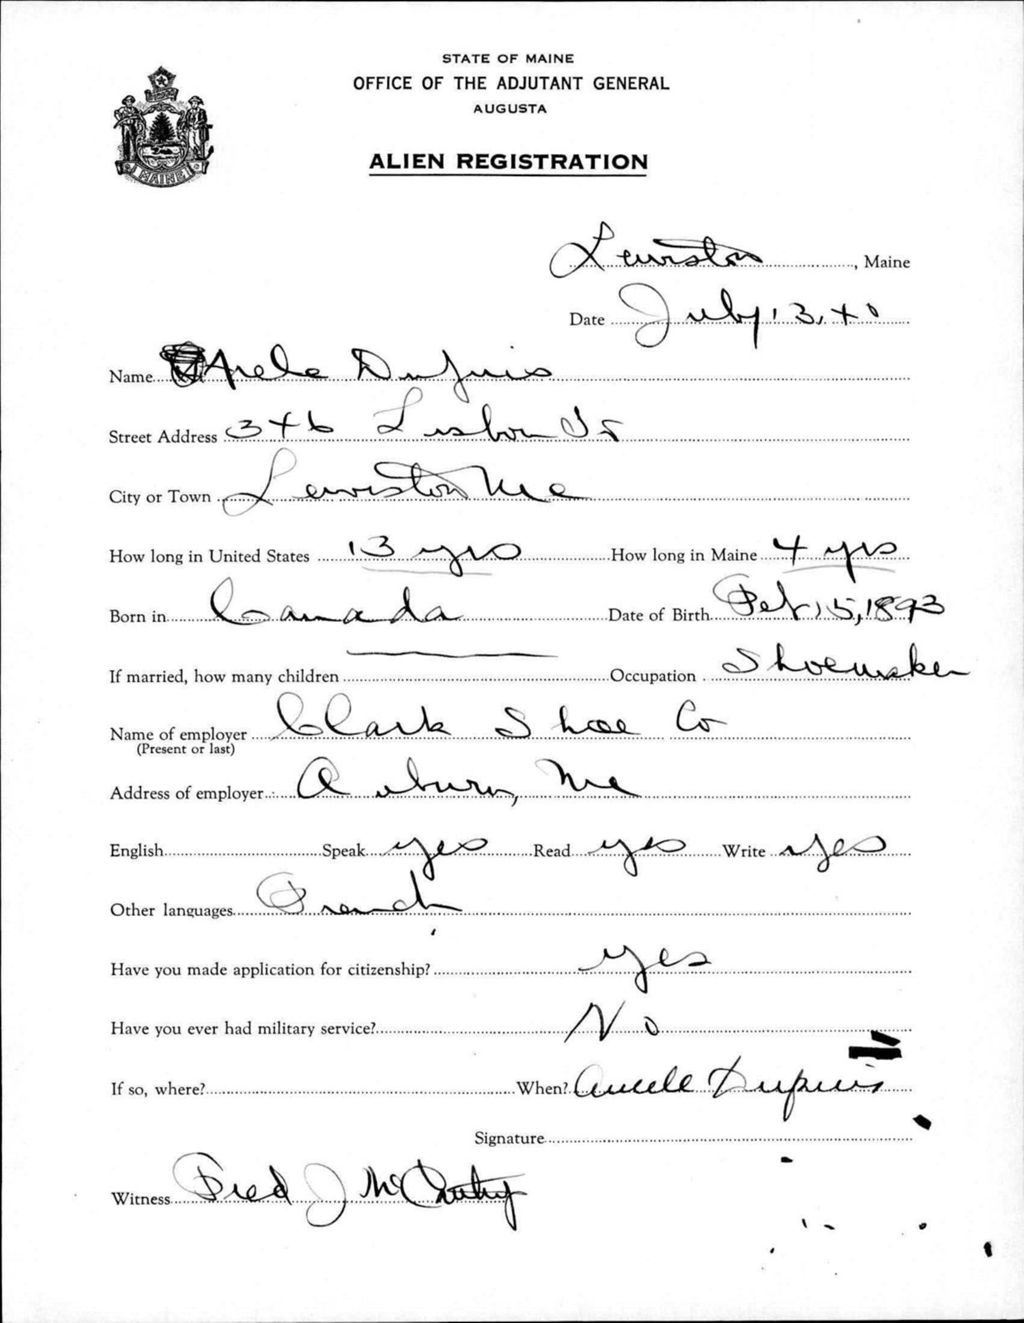 STATE OF MAINE
OFFICE OF THE ADJUTANT GENERAL
AUGUSTA
MAINE
ALIEN REGISTRATION
Lewiston, Maine
Date July 13, 40
Name Dupuis
Street Address 346 Lisbon St
City or Town Lewiston Me
How long in United States 13 yrs How long in Maine 4 yrs
Born in Canada Date of Birth Feb, 15, 1893
If married, how many children — Occupation Shoemaker
Name of employer Clark Shoe Co
(Present or last)
Address of employer Auburn, Me
English Speak yes Read yes Write yes
Other languages French
Have you made application for citizenship? yes
Have you ever had military service? No
If so, where? When? Dupuis
Signature
Witness Fred J McCarthy